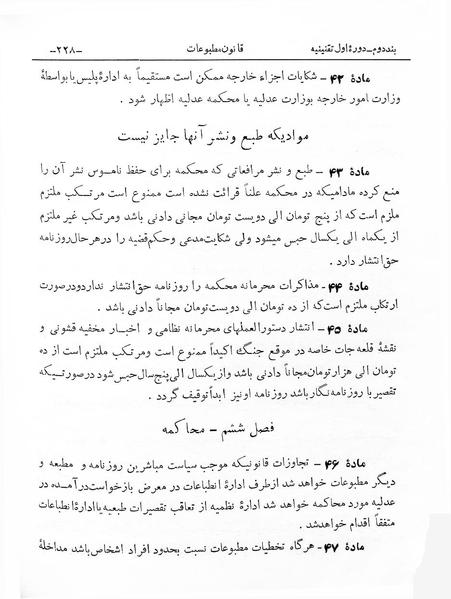 بند دوم ـ دورهٔ اول تقنینیه قانون مطبوعات ـ۲۲۸ـ
مادهٔ ۴۲ ـ شکایات اجزاء خارجه ممکن است مستقیماً به ادارهٔ پلیس یا بواسطهٔ
وزارت امور خارجه بوزارت عدلیه یا محکمه عدلیه اظهار شود .
موادیکه طبع و نشر آنها جایز نیست
مادهٔ ۴۳ ـ طبع و نشر مرافعاتی که محکمه برای حفظ ناموس نشر آن را
منع کرده مادامیکه در محکمه علناً قرائت نشده است ممنوع است مرتکب ملتزم
ملزم است که از پنج تومان الی دویست تومان مجانی دادنی باشد ومرتکب غیر ملتزم
از یکماه الی یکسال حبس میشود ولی شکایت مدعی وحکم قضیه را در هر حال روزنامه
حق انتشار دارد .
مادهٔ ۴۴ ـ مذاکرات محرمانه محکمه را روزنامه حق انتشار ندارد ودرصورت
ارتکاب ملتزم است که از ده تومان الی دویست تومان مجاناً دادنی باشد .
مادهٔ ۴۵ ـ انتشار دستورالعملهای محرمانه نظامی و اخبار مخفیه قشونی و
نقشهٔ قلعه جات خاصه در موقع جنگ اکیداً ممنوع است ومرتکب ملتزم است از ده
تومان الی هزار تومان مجاناً دادنی باشد واز یکسال الی پنج سال حبس شود درصورتیکه
تقصیر با روزنامه نگار باشد روزنامه او نیز ابداً توقیف گردد .
فصل ششم ـ محاکمه
مادهٔ ۴۶ ـ تجاوزات قانونیکه موجب سیاست مباشرین روزنامه و مطبعه و
دیگر مطبوعات خواهد شد ازطرف ادارهٔ انطباعات در معرض بازخواست درآمده در
عدلیه مورد محاکمه خواهد شد ادارهٔ نظمیه از تعاقب تقصیرات طبعیه با ادارهٔ انطباعات
متفقاً اقدام خواهد شد .
مادهٔ ۴۷ ـ هرگاه تخطیات مطبوعات نسبت بحدود افراد اشخاص باشد مداخلهٔ